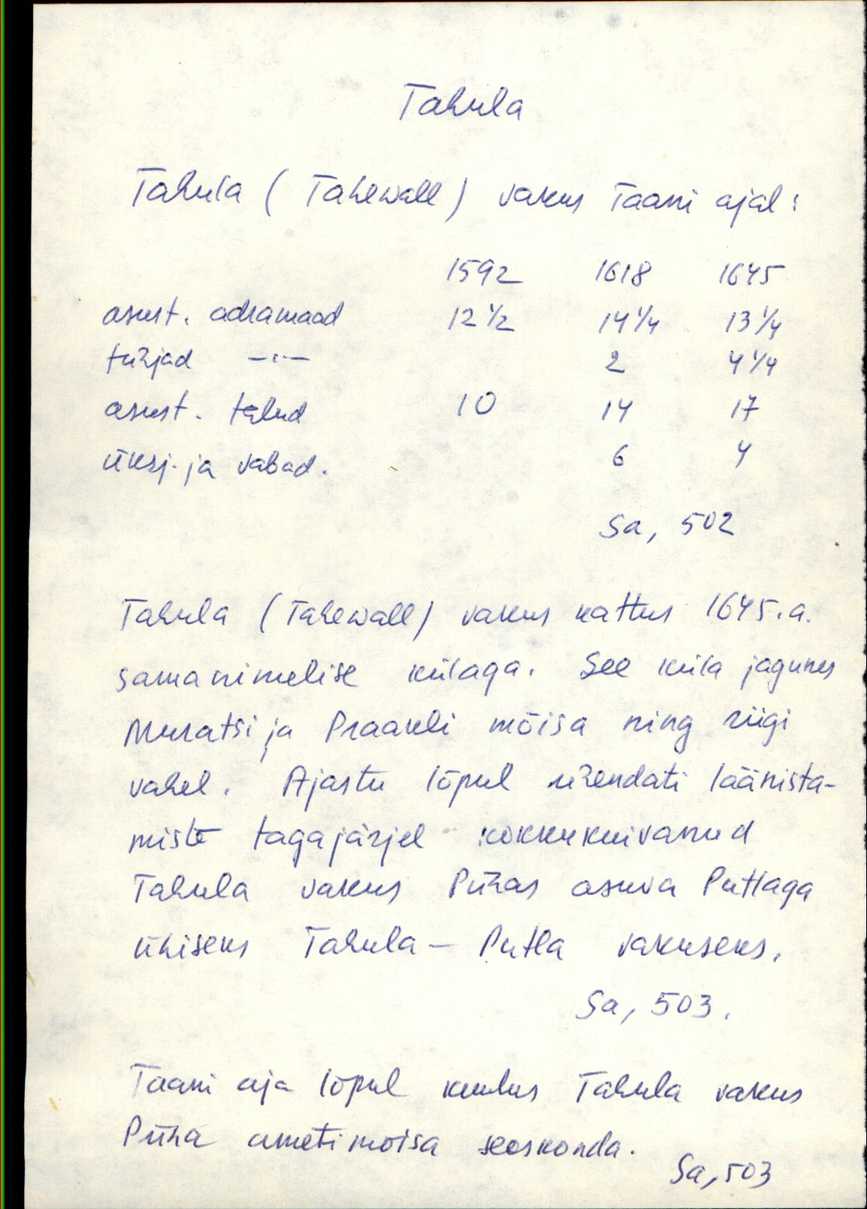 Tahula
Tahula (Tahewall) vakus Taani ajal:
1592 1618 1645
asust. adramaad 12 1/2 14 1/4 13 1/4
tühjad —"— 2 4 1/4
asust. talud 10 14 17
üksj. ja vabad. 6 4
Sa, 502
Tahula (Tahewall) vakus kattus 1645.a.
samanimelise külaga. See küla jagunes
Muratsi ja Praakli mõisa ning riigi
vahel. Ajastu lõpul ühendati läänista-
miste tagajärjel kokkukuivanud
Tahula vakus Pühas asuva Putlaga
ühiseks Tahula – Putla vakuseks.
Sa, 503.
Taani aja lõpul kuulus Tahula vakus
Püha ametimõisa seoskonda.
Sa, 503